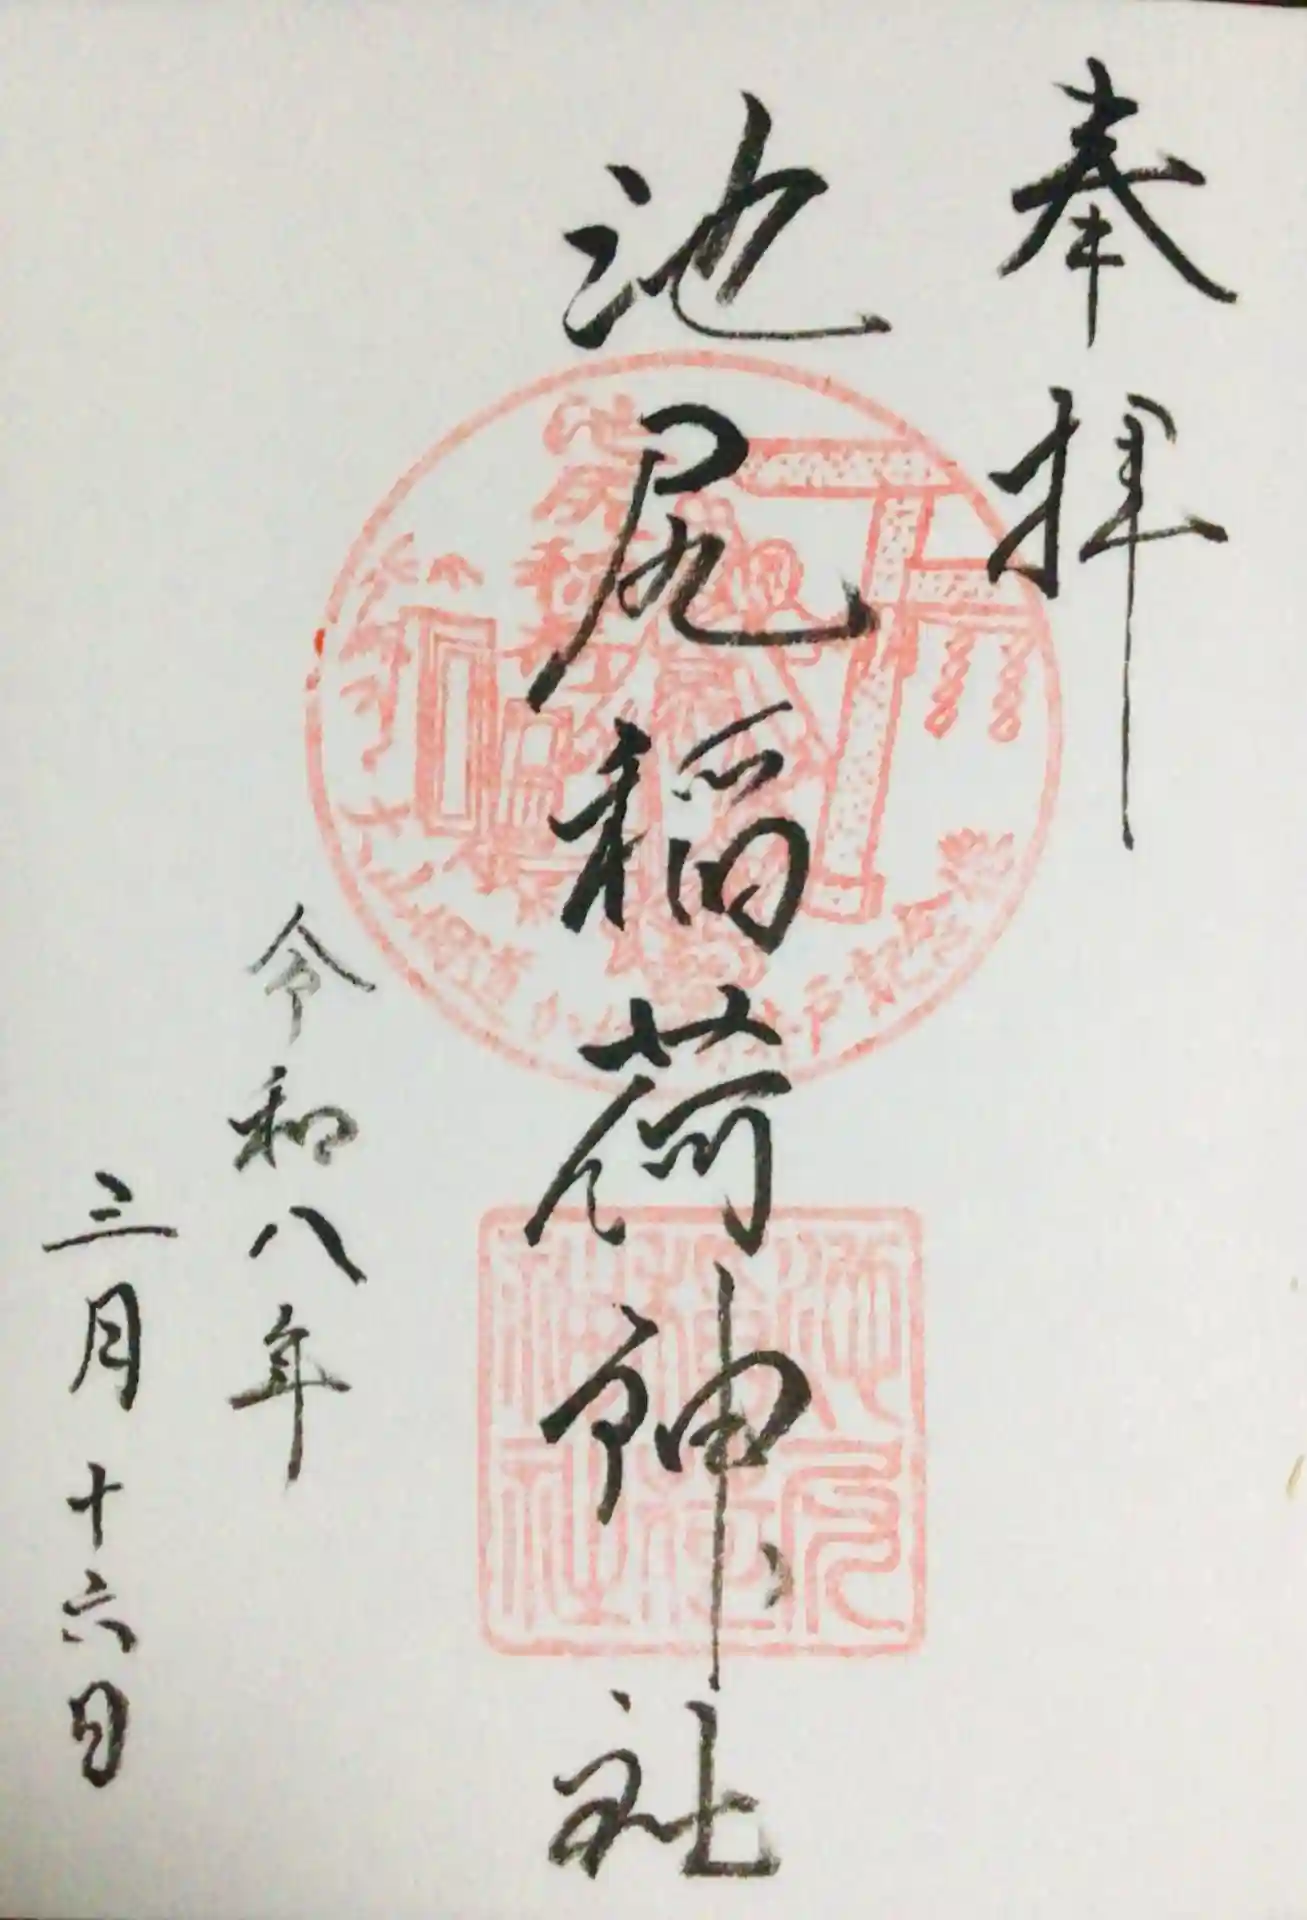 奉拝
池尻稲荷神社
令和八年
三月十六日
池尻
稲荷
神社